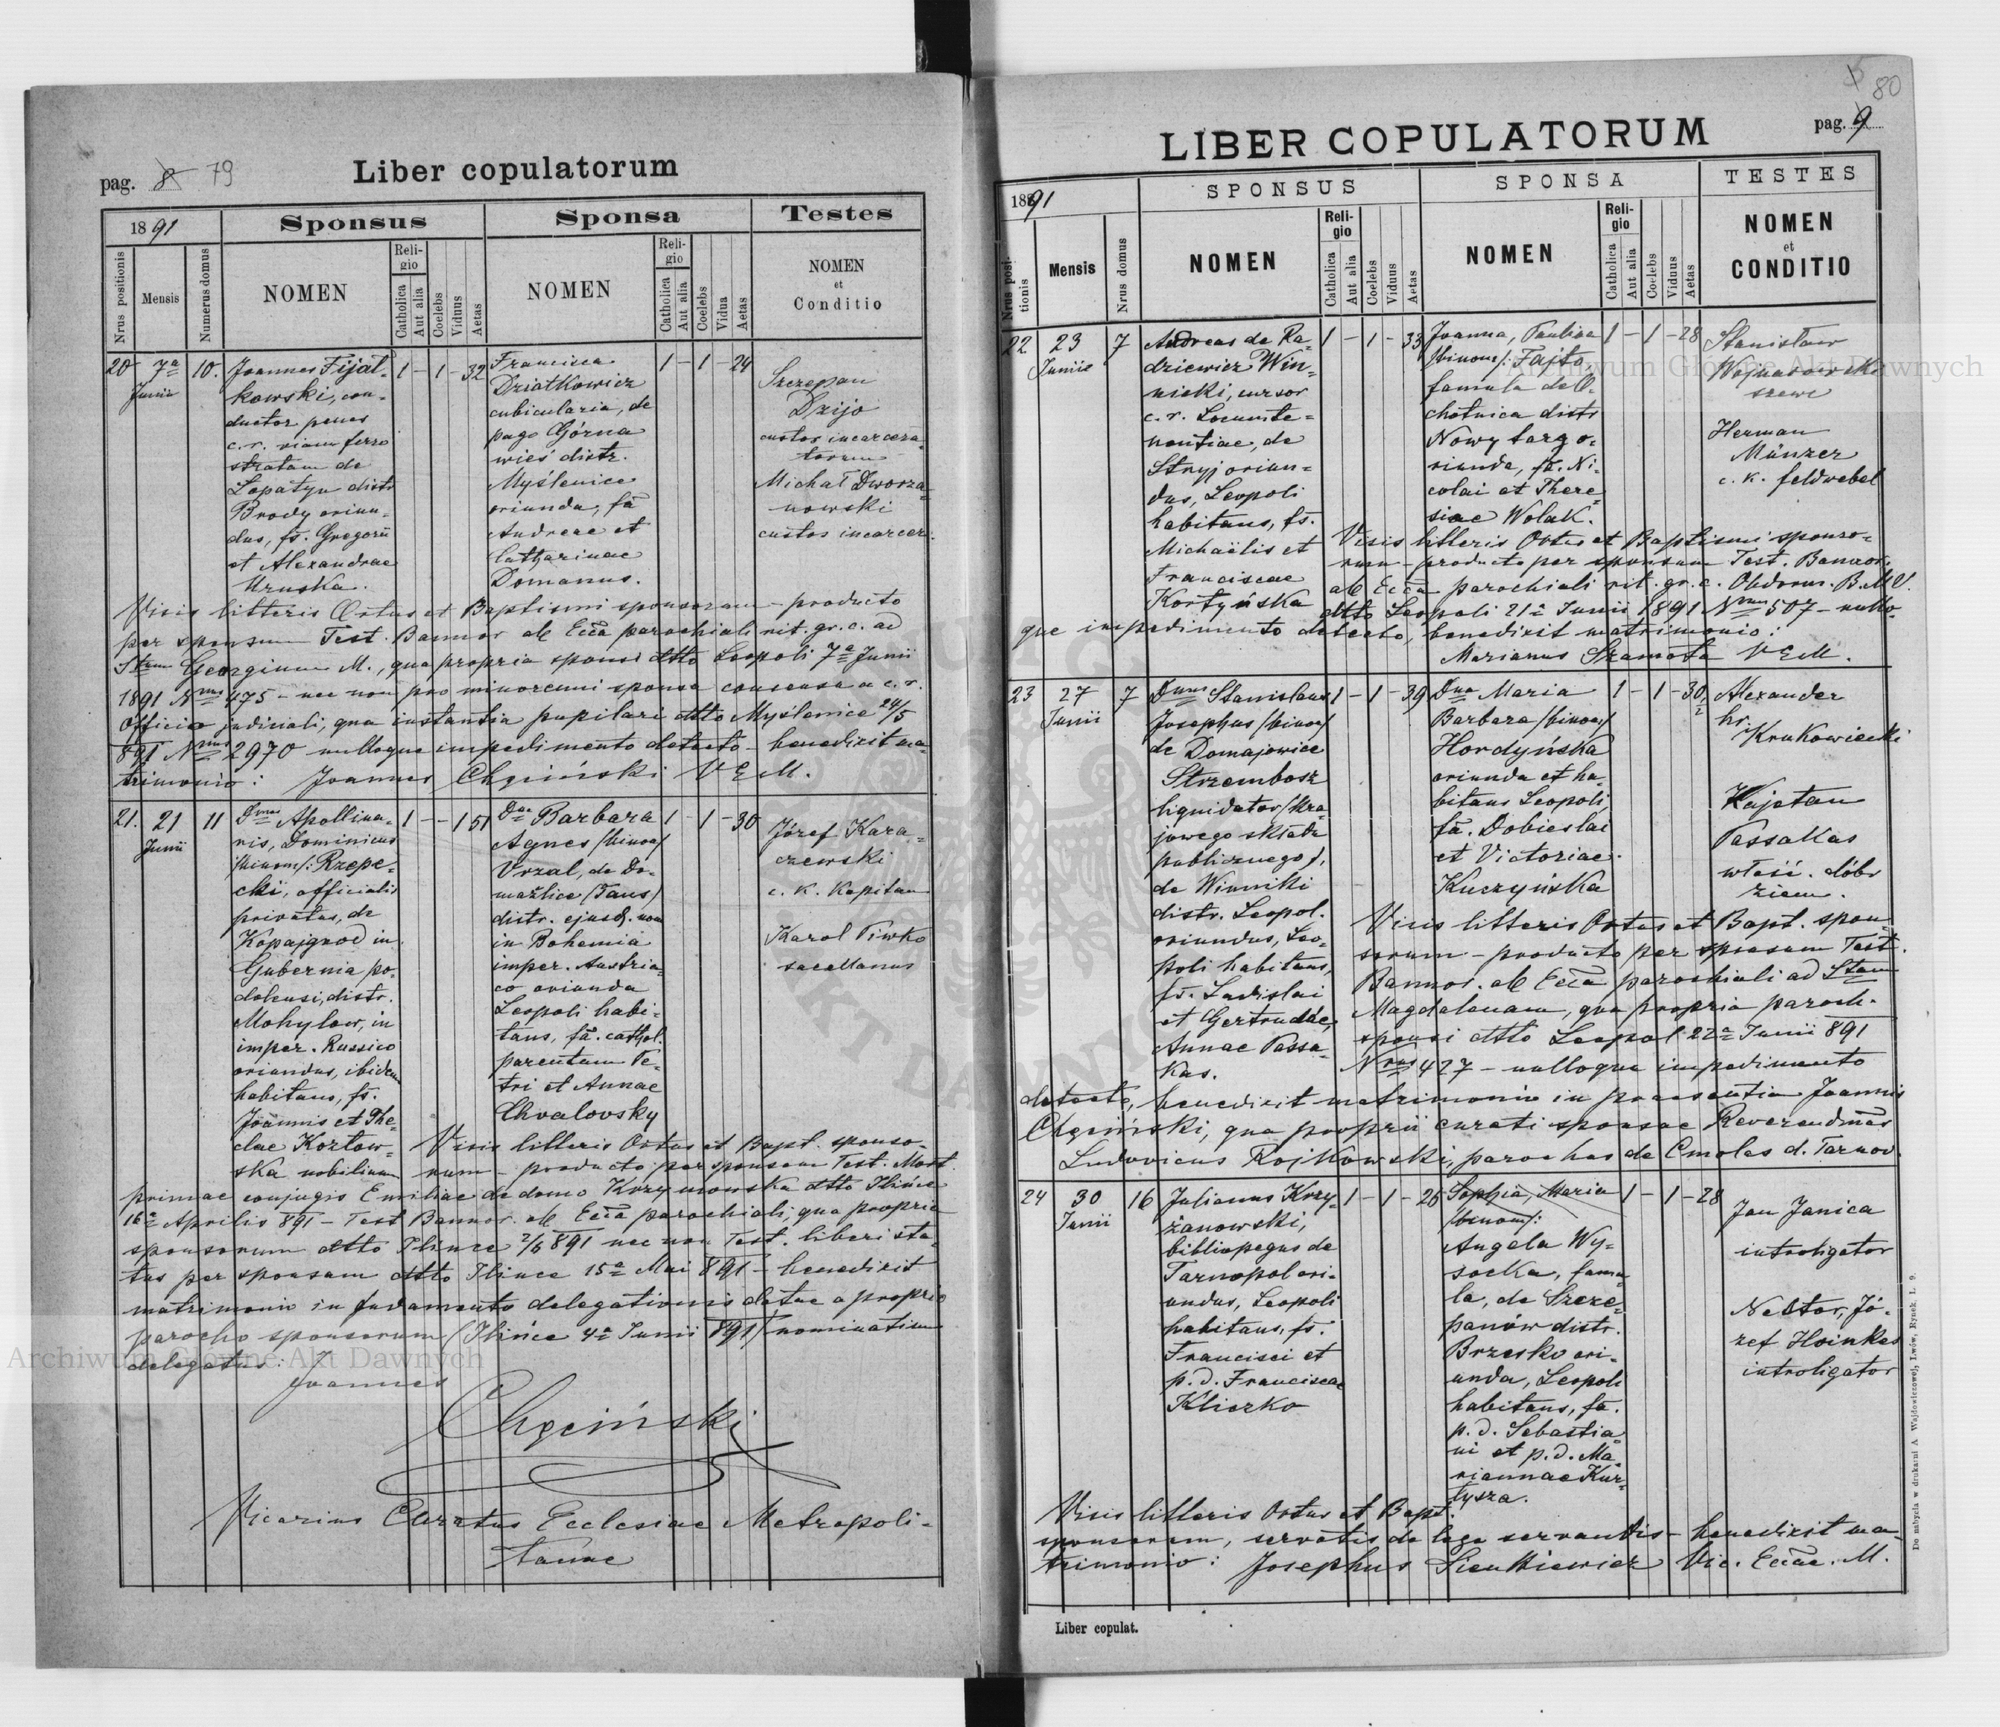 pag. 8 79
Liber copulatorum
1891
Sponsus
Sponsa
Testes
Nrus positionis
Mensis
Numerus domus
NOMEN
Reli-
gio
Catholica
Aut alia
Coelebs
Viduus
Aetas
NOMEN
Reli-
gio
Catholica
Aut alia
Coelebs
Vidua
Aetas
NOMEN
et
Conditio
20 7a Junii 10.
Joannes Fijał-
kowski, con-
ductor penes
c. r. viam ferro
stratam de
Łopatyn distr
Brody oriun-
dus, fs. Gregorii
et Alexandrae
Hruska.
1 – 1 – 32
Francisca
Dziatkowicz
cubicularia, de
pago Górna
wieś distr.
Myślenice
oriunda, fa
Andreae et
Catharinae
Domanus.
1 – 1 – 24
Szczepan
Dzijo
custos incarcera-
torum
Michał Dworza-
nowski
custos incarcer.
Visis litteris Ortus et Baptismi sponsorum – producto
per sponsum Test. Bannor. ab Ecća parochiali rit. gr. c. ad
Strum Georgium M., qua propria sponsi dtto Leopoli 7a Junii
1891 Nrus 475 – nec non pro minorenni sponsa consensu a c. r.
Officio judiciali, qua instantia pupilari dtto Myślenice 24/5
891 Nrus 2970 nulloque impedimento detecto – benedixit ma-
trimonio: Joannes Chęciński V E M.
21. 21 Junii 11
Dnus Apollina-
ris, Dominicus
/binom/: Rzepe-
cki, officialis
privatus, de
Kopajgrod in
Gubernia po-
dolensi, distr.
Mohylow, in
imper. Russico
oriundus, ibidem
habitans, fs.
Joannis et The-
clae Kozłow-
ska nobilium
1 – – 1 51
Dna Barbara
Agnes /binom/
Vrzal, de Do-
mažlice /Taus/
distr. ejusd. nom
in Bohemia
imper. Austria-
co oriunda
Leopoli habi-
tans, fa. cathol.
parentum Pe-
tri et Annae
Chvalovsky
1 – 1 – 30
Józef Kara-
czewski
c. k. Kapitan
Karol Piwko
sacellanus
Visis litteris Ortus et Bapt. sponso-
rum – producto per sponsum Test. Mort.
primae conjugis Emiliae de domo Krzymowska dtto Ilińce
16a Aprilis 891 – Test Bannor. ab Ecća parochiali, qua propria
sponsorum dtto Ilince 2/6 891 nec non Test. liberi sta-
tus per sponsam dtto Ilince 15a Mai 891 – benedixit
matrimonio in fudamento delegationis datae a proprio
parocho sponsorum /Ilińce 4a Junii 891/ nominatim
delegatus: Joannes
Chęciński
Vicarius Curatus Ecclesiae Metropoli-
tanae
80
pag. 9
LIBER COPULATORUM
1891
SPONSUS
SPONSA
TESTES
Nrus posi-
tionis
Mensis
Nrus domus
NOMEN
Reli-
gio
Catholica
Aut alia
Coelebs
Viduus
Aetas
NOMEN
Reli-
gio
Catholica
Aut alia
Coelebs
Vidua
Aetas
NOMEN
et
CONDITIO
22 23 Junii 7
Andreas de Ra-
dziewicz Win-
nicki, cursor
c. r. Locumte-
nentiae, de
Stryj oriun-
dus, Leopoli
habitans, fs.
Michaëlis et
Franciscae
Kortyńska
1 – 1 – 33
Joanna, Paulina
/binom/: Fajto
famula de O-
chotnica distr
Nowy targ o-
riunda, fa. Ni-
colai et There-
siae Wolak.
1 – 1 – 28
Stanisław
szewc
Herman
Münzer
c. k. feldwebel
Visis litteris Ortus et Baptismi sponso-
rum – producto per sponsum Test. Bannor.
ab Ecća parochiali rit. gr. c. Obdorm. B.M.V.
dtto Leopoli 21a Junii 1891 Nrus 507 – nullo-
que impedimento detecto, benedixit matrimonio:
Marianus Szamota V E M.
23 27 Junii 7
Dnus Stanislaus
Josephus /binom/
de Domajowice
Strzembosz
liquidator /kra-
jowego składu
publicznego/,
de Winniki
distr. Leopol.
oriundus, Leo-
poli habitans,
fs. Ladislai
et Gertrudae,
Annae Passa-
kas.
1 – 1 – 39
Dna Maria
Barbara /binom/
Hordyńska
oriunda et ha-
bitans Leopoli
fa. Dobieslai
et Victoriae
Kuczyńska
1 – 1 – 30 1/2
Alexander
hr.
Krukowiecki
Kajetan
Passakas
właść. dóbr
ziem.
Visis litteris Ortus et Bapt. spon-
sorum – producto per sponsum Test.
Bannor. ab Ecća parochiali ad Stam
Magdalenam, qua propria paroch.
sponsi dtto Leopol 22a Junii 891
Nrus 427 – nulloque impedimento
detecto, benedixit matrimonio in praesentia Joannis
Chęciński, qua proprii curati sponsae Reverendmus
Ludovicus Rojkowski, parochus de Cmolas d. Tarnov.
24 30 Junii 16
Julianus Krzy-
żanowski,
bibliopegus de
Tarnopol ori-
undus, Leopoli
habitans, fs.
Francisci et
p. d. Franciscae
Kliczko
1 – 1 – 26
Sophia, Maria
/binom/:
Angela Wy-
socka, famu-
la, de Szcze-
panów distr.
Brzesko ori-
unda, Leopoli
habitans, fa.
p. d. Sebastia-
ni et p. d. Ma-
riannae Kur-
tysza.
1 – 1 – 28
Jan Janica
introligator
Nebtor, Jó-
zef Hoinkes
introligator
Visis litteris Ortus et Bapt.
sponsorum, servatis de lege servandis – benedixit ma-
trimonio: Josephus Sienkiewicz Vic. Ecćae. M.
Liber copulat.
Do nabycia w drukarni A. Wajdowiczowej, Lwów, Rynek l. 9.
Archiwum Główne Akt Dawnych
Archiwum Główne Akt Dawnych